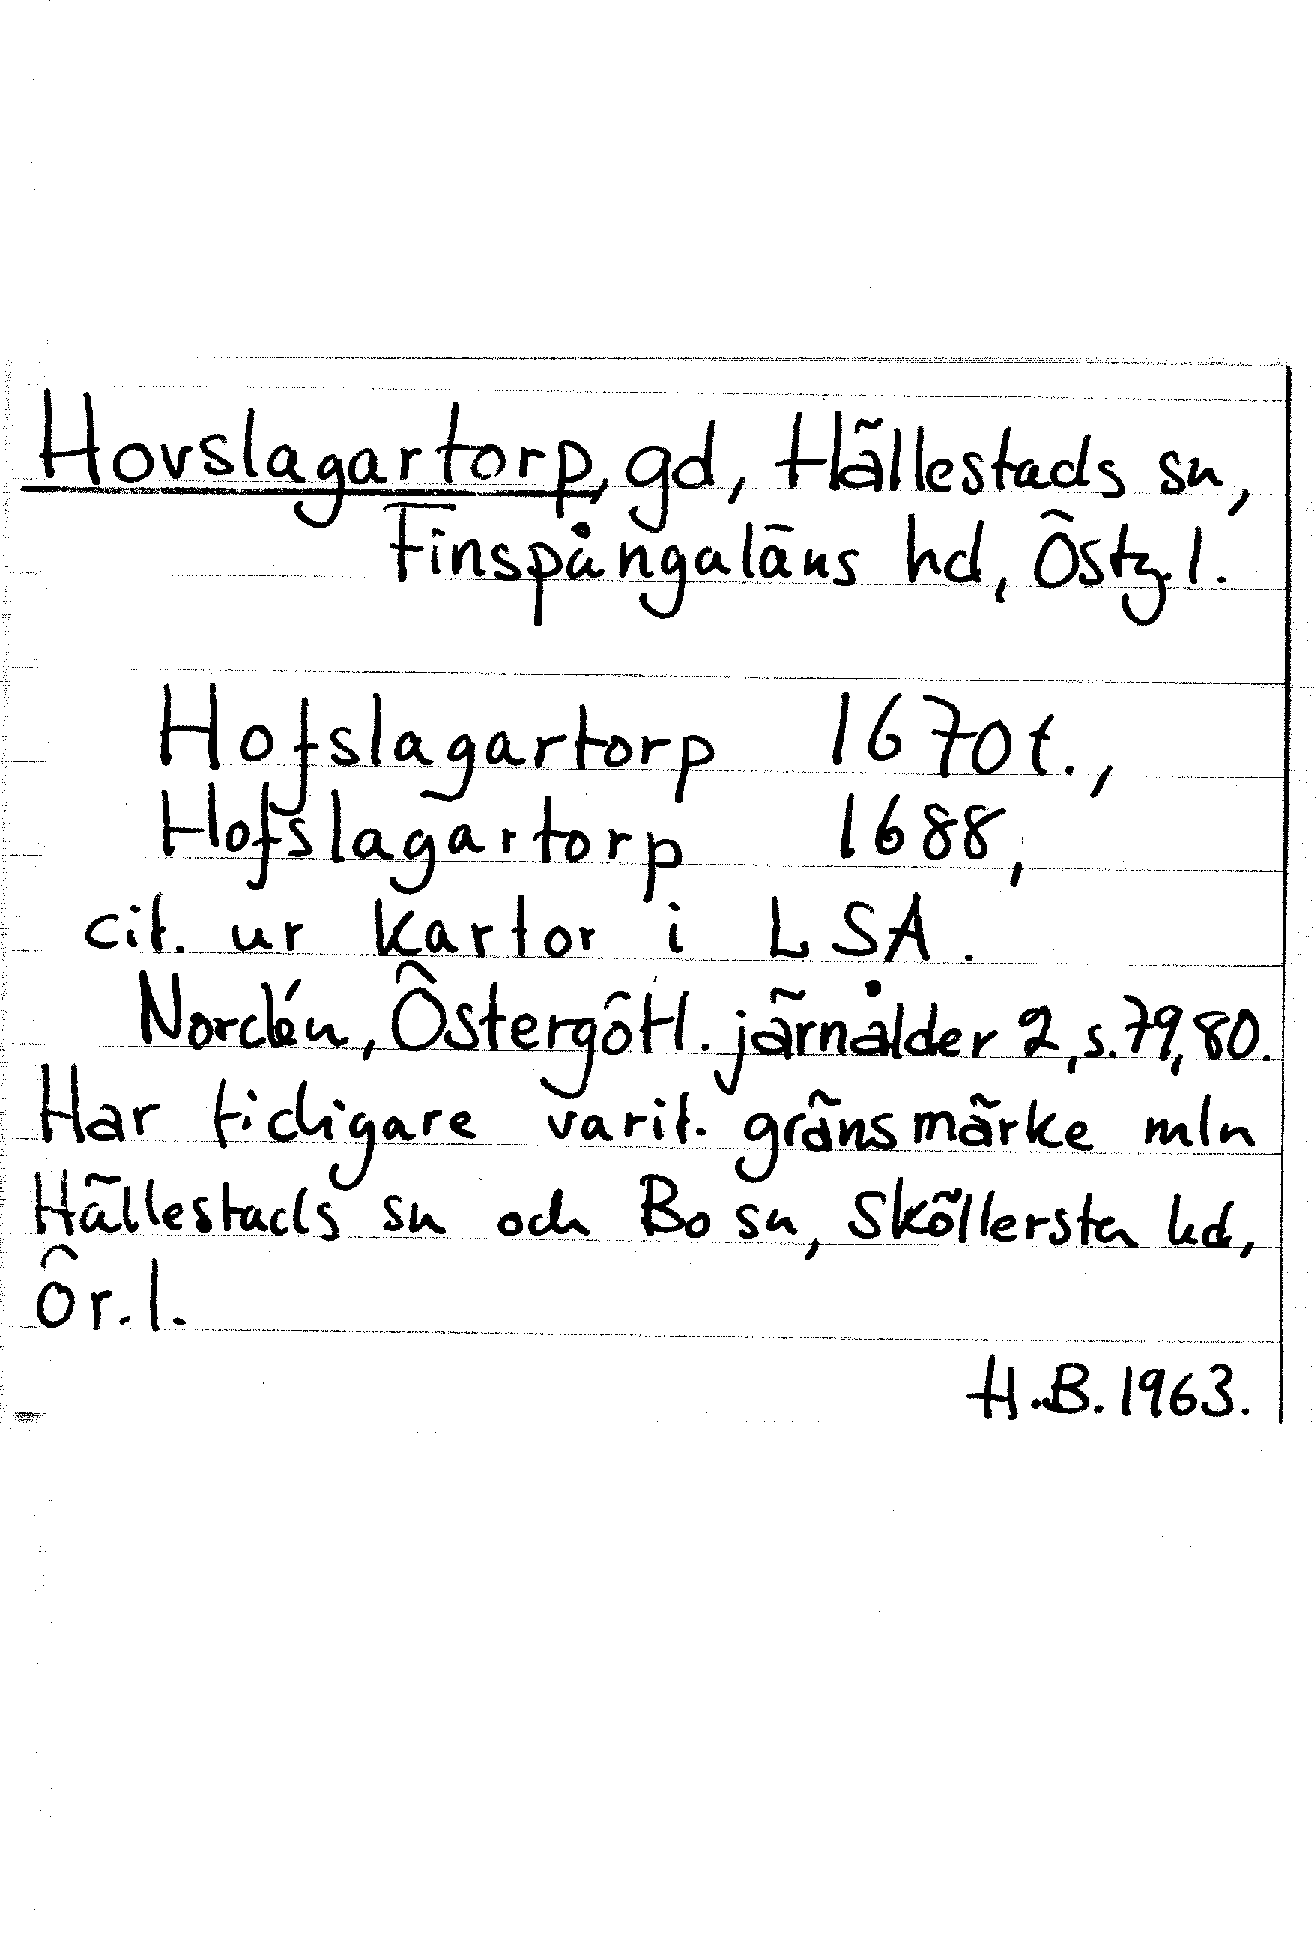 Hovslagartorp, gd, Hällestads sn,
Finspångaläns hd, Östg.l.
Hofslagartorp 1670t.,
Hofslagartorp 1688,
cit. ur kartor i LSA.
Nordén, Östergötl. järnålder 2, s.79,80.
Har tidigare varit. gränsmärke mln
Hällestads sn och Bo sn, Sköllersta hd,
Ör.l.
H.B. 1963.